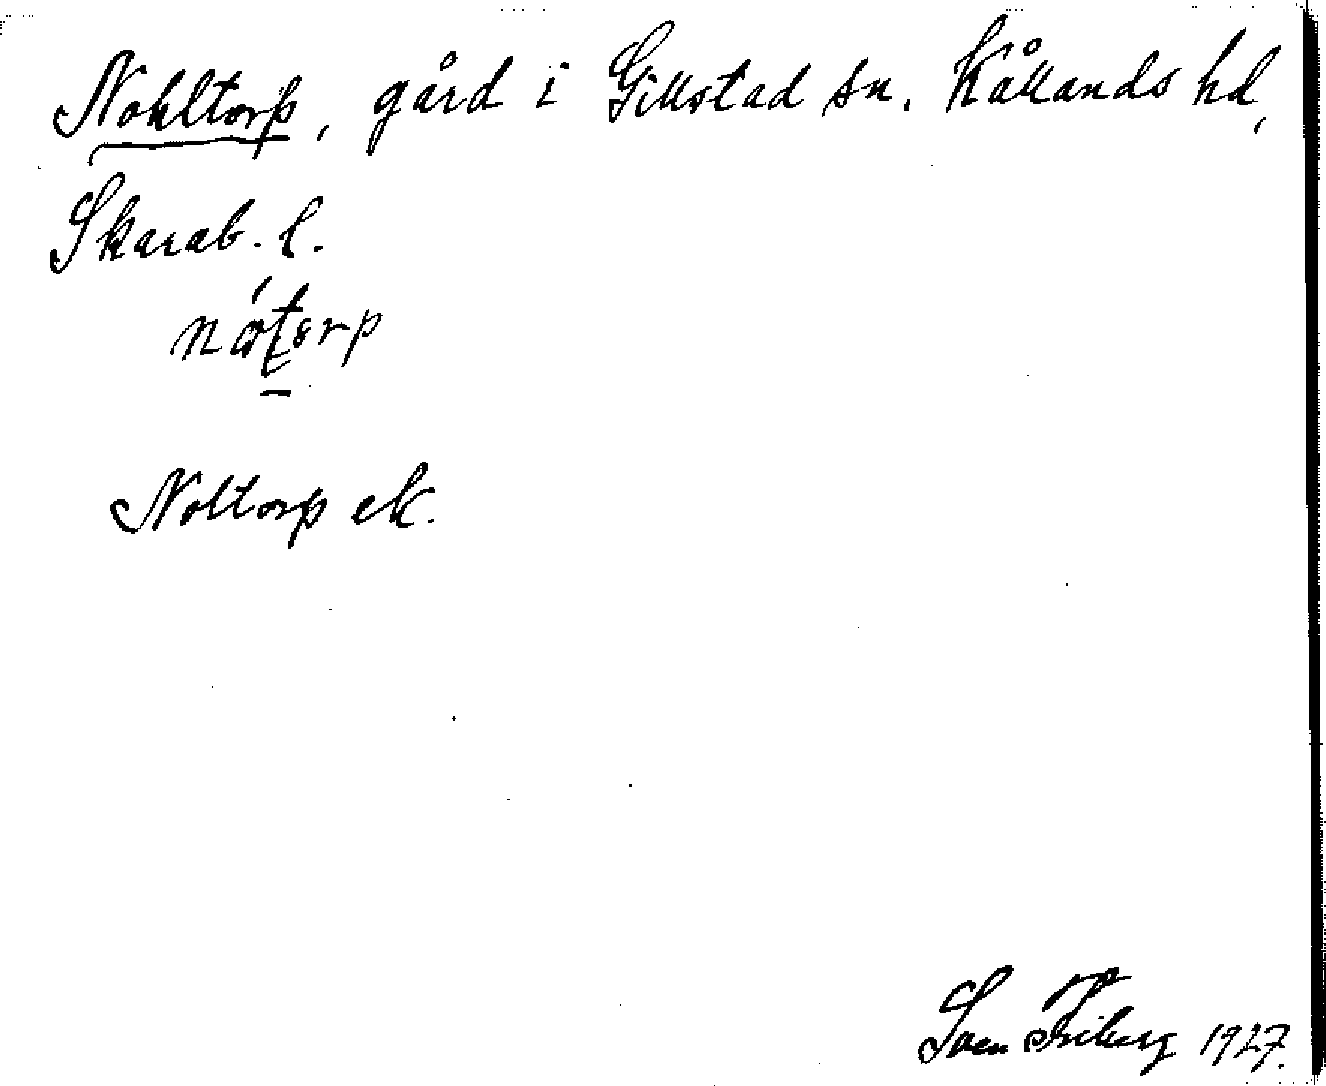 Nohltorp, gård i Gillstad sn. Kållands hd,
Skarab. l.
Noltorp ek.
Sven Friberg 1927.